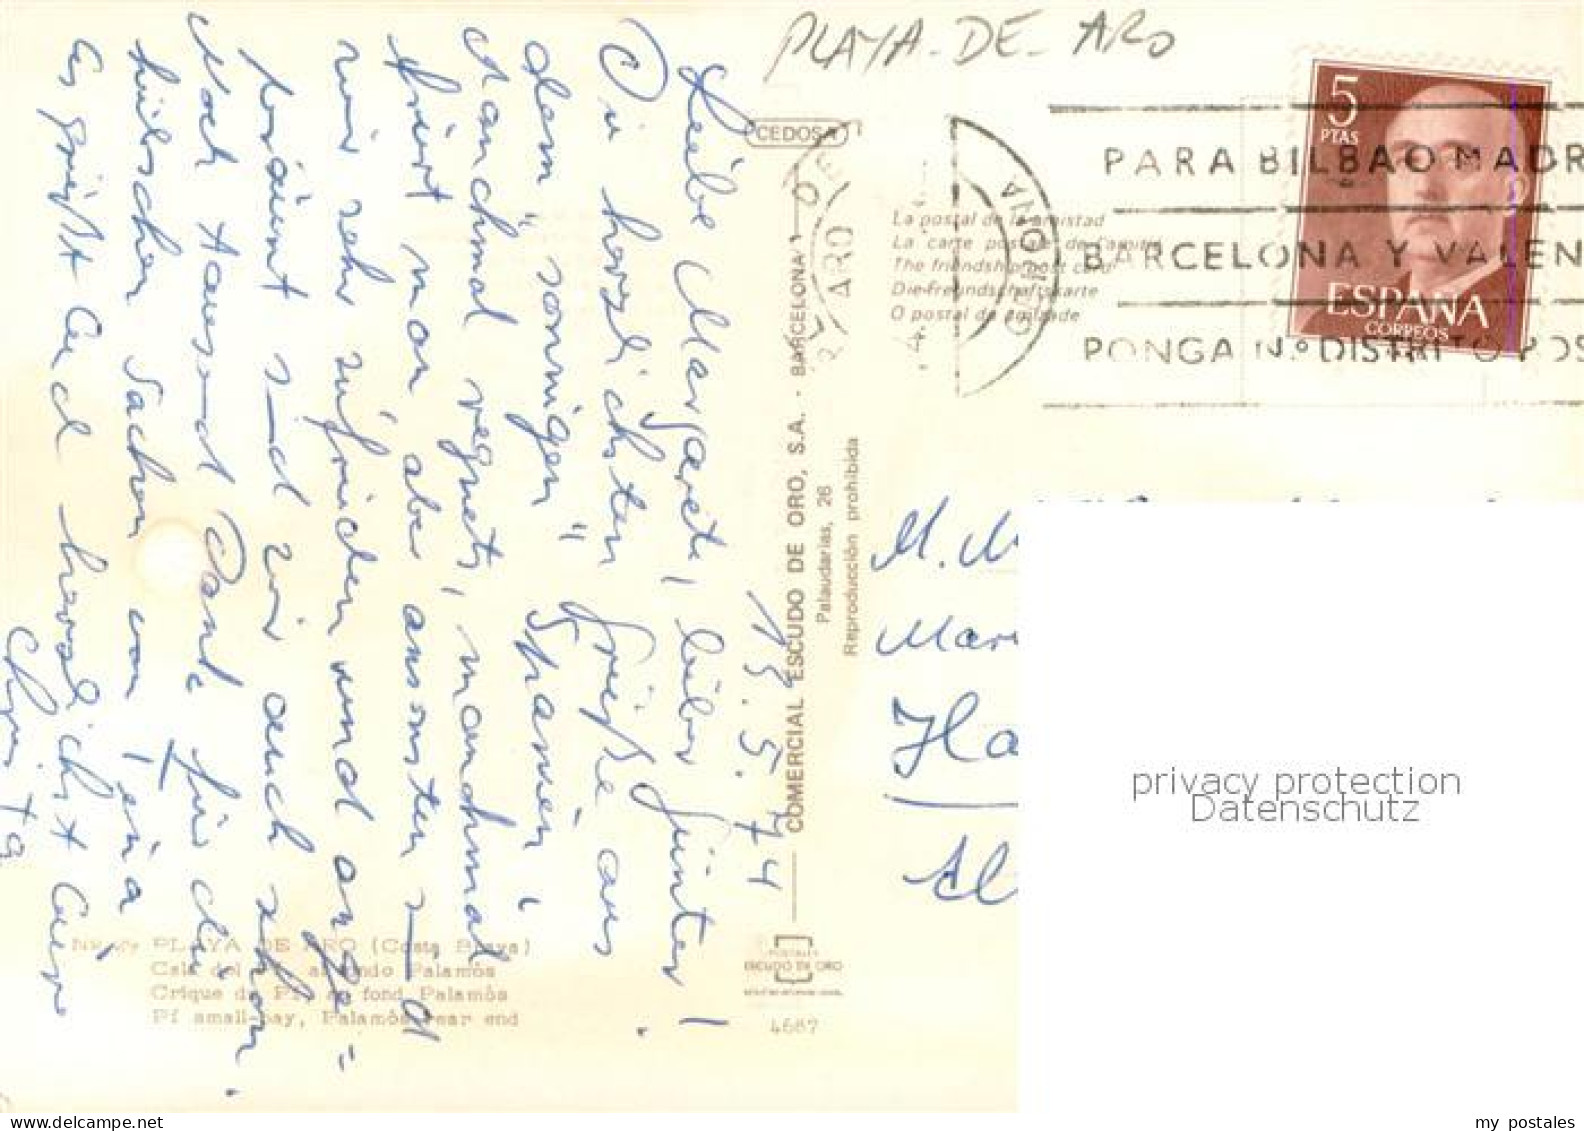 PLAYA-DE-ARO
CEDOSA
5
PTAS
ESPAÑA
CORREOS
PARA BILBAO MADR
BARCELONA Y VALEN
PONGA N.º DISTRITO POS
ARO
GERONA
La postal de la amistad
La carte postale de l'amitié
The friendship post card
Die Freundschaftskarte
O postal de amizade
13.5.74
Liebe Margarete, lieber Günter!
Die herzlichsten Grüße aus
dem "sonnigen" Spanien.
Manchmal regnet, manchmal
friert man aber ansonsten sind
wir sehr zufrieden und ange=
bräunt sind wir auch schon.
Noch tausend Dank für die
hübschen Sachen von
Es grüßt Euch herzlichst Eure
Christa
COMERCIAL ESCUDO DE ORO, S.A. - BARCELONA
Palaudarias, 26
Reproducción prohibida
PLAYA DE ARO (Costa Brava)
Cala del Pí, al fondo Palamós
Crique du Pí, au fond Palamós
Pí small-bay, Palamós rear end
POSTALES
ESCUDO DE ORO
4687
M. M
Mar
Ha
privacy protection
Datenschutz
my postales